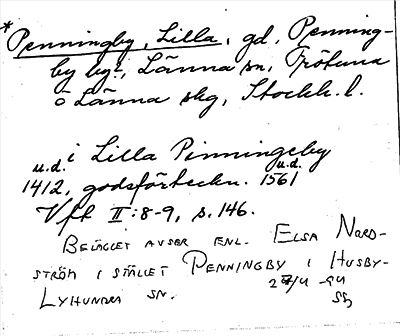 * Penningby, Lilla, gd, Penning-
by by?, Länna sn, Frötuna
o Länna skg, Stockh. l.
i Lilla Pinningeby
u.d. u.d.
1412, godsförteckn. 1561
Vfk II:8-9, s. 146.
BELÄGGET AVSER ENL. ELSA NORD-
STRÖM I STÄLLET PENNINGBY I HUSBY-
LYHUNDRA SN.